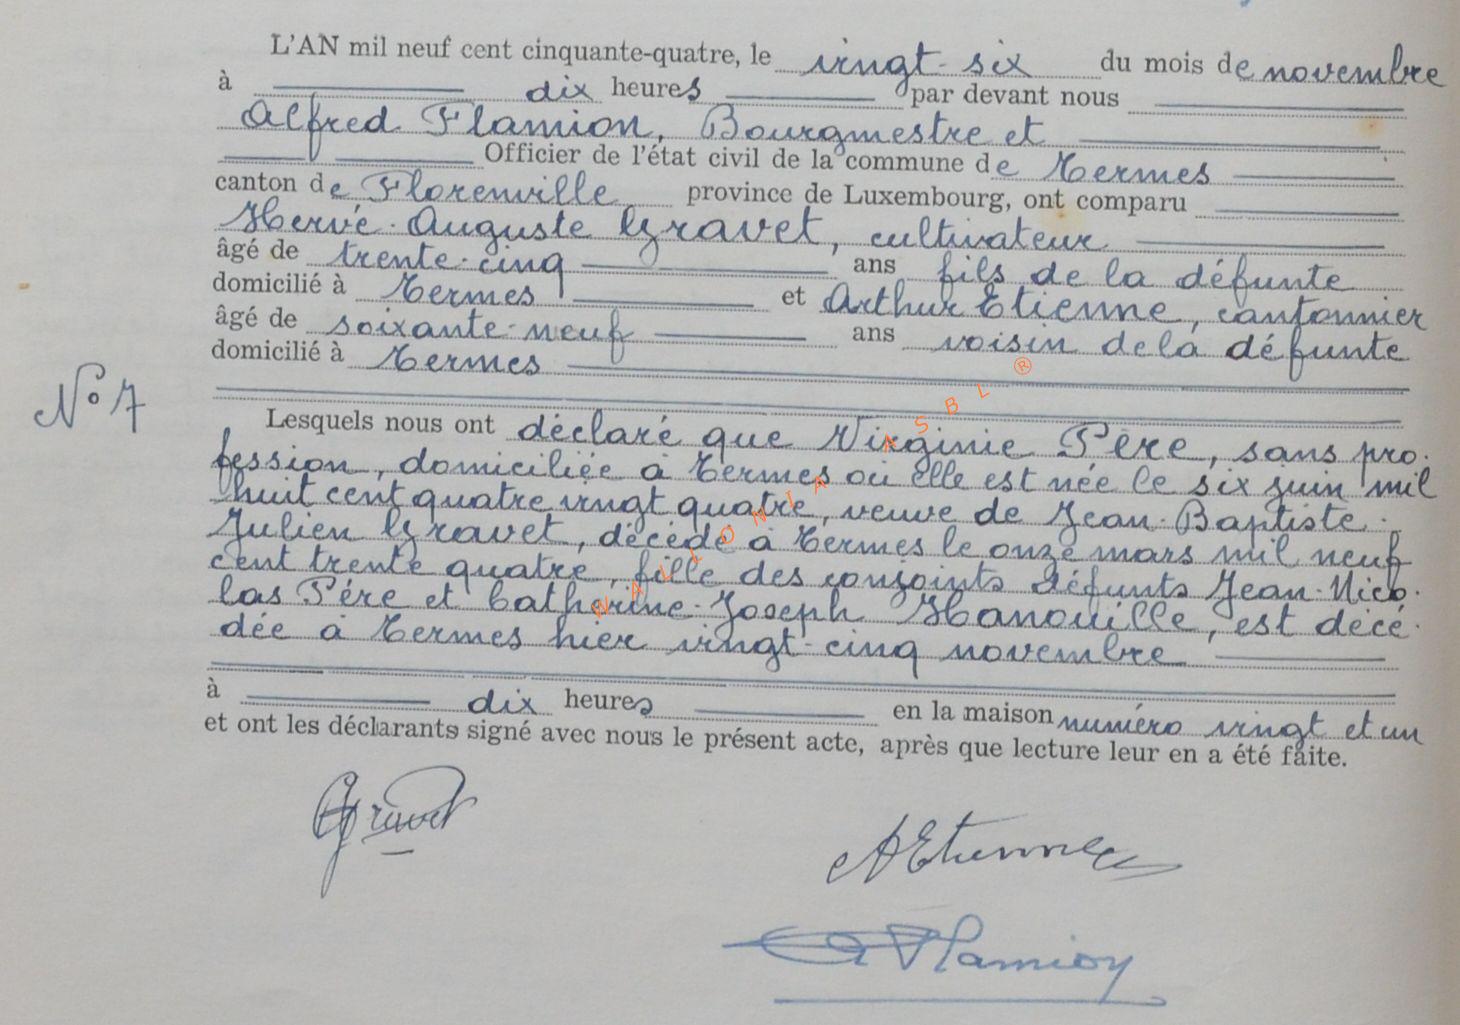 L'AN mil neuf cent cinquante-quatre, le vingt-six du mois de novembre
à dix heures par devant nous
Alfred Flamion, Bourgmestre et
Officier de l'état civil de la commune de Termes
canton de Florenville province de Luxembourg, ont comparu
Hervé-Auguste Gravet, cultivateur
âgé de trente-cinq ans fils de la défunte
domicilié à Termes et Arthur Etienne, cantonnier
âgé de soixante-neuf ans voisin de la défunte
domicilié à Termes
N° 7
Lesquels nous ont déclaré que Virginie Père, sans pro-
fession, domiciliée à Termes où elle est née le six juin mil
huit cent quatre vingt quatre, veuve de Jean-Baptiste-
Julien Gravet, décédé à Termes le onze mars mil neuf
cent trente quatre, fille des conjoints défunts Jean-Nico-
las Père et Catherine-Joseph Hanouille, est décé-
dée à Termes hier vingt-cinq novembre
à dix heures en la maison numéro vingt et un
et ont les déclarants signé avec nous le présent acte, après que lecture leur en a été faite.
Gravet
AEtienne
A Flamion
WALLONIA ASBL ®